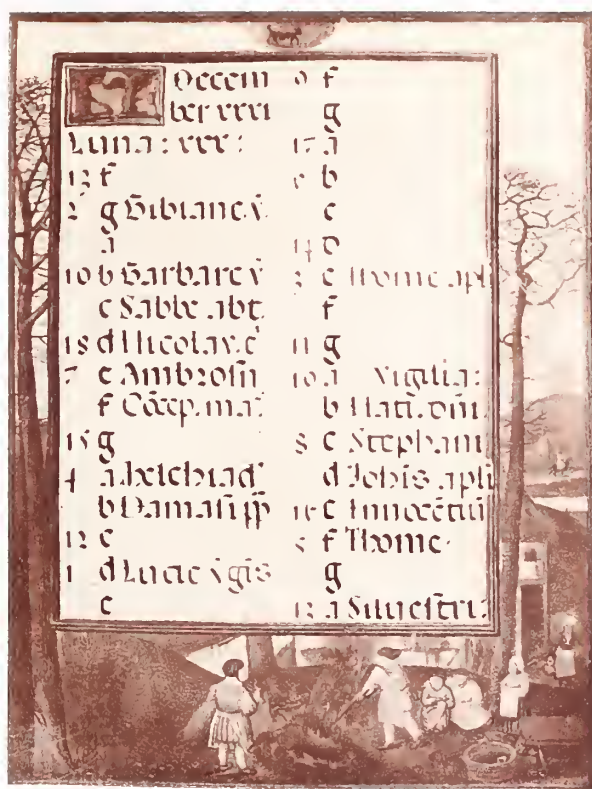 KL Decem
ber xxxi
Luna: xxx:
13 f
2 g Bibiane v.
a
10 b Barbare v
c Sabbe abt.
18 d Nicolay. c
7 e Ambrosii
f Cōcep. ma.
15 g
4 a Melchiad'
b Damasi pp
12 c
1 d Lucie v̄gis
e
9 f
g
17 a
6 b
c
14 d
3 e Thome apli
f
11 g
10 a Vigilia:
b Nati. dn̄i.
8 c Stephani
d Joh̄is apli
16 e Innocētiū
5 f Thome.
g
13 a Silvestri: